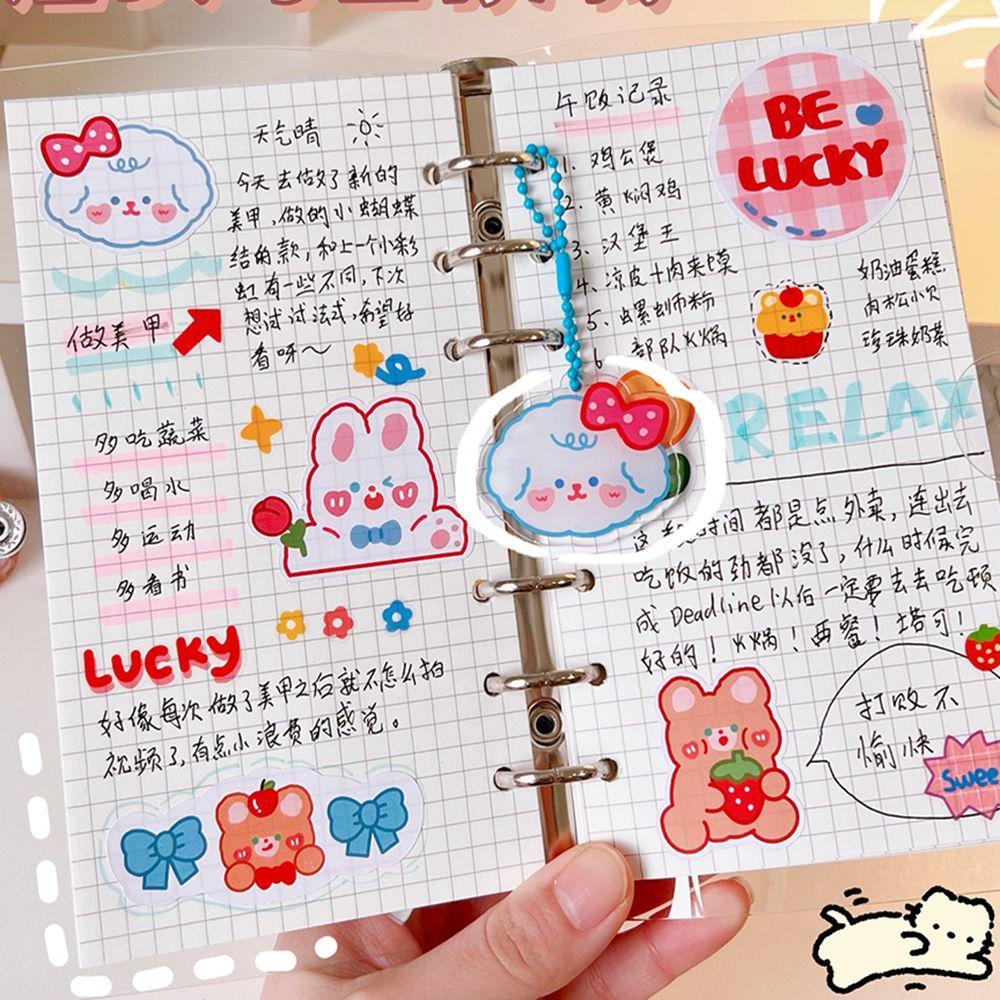 天气晴
今天去做了新的
美甲,做的小蝴蝶
结的款,和上一个小彩
虹有一些不同,下次
想试试法式,希望好
看呀～
做美甲
多吃蔬菜
多喝水
多运动
多看书
LUCKY
好像每次做了美甲之后就不怎么拍
视频了,有点小浪费的感觉。
午饭记录
1. 鸡公煲
2. 黄焖鸡
3. 汉堡王
4. 凉皮+肉夹馍
5. 螺蛳粉
6 部队火锅
BE
LUCKY
奶油蛋糕
肉松小贝
珍珠奶茶
RELAX
这 时间都是点外卖,连出去
吃饭的劲都没了,什么时候完
成Deadline以后一定要去去吃顿
好的!火锅!西餐!塔可!
打败不
愉快
Swee